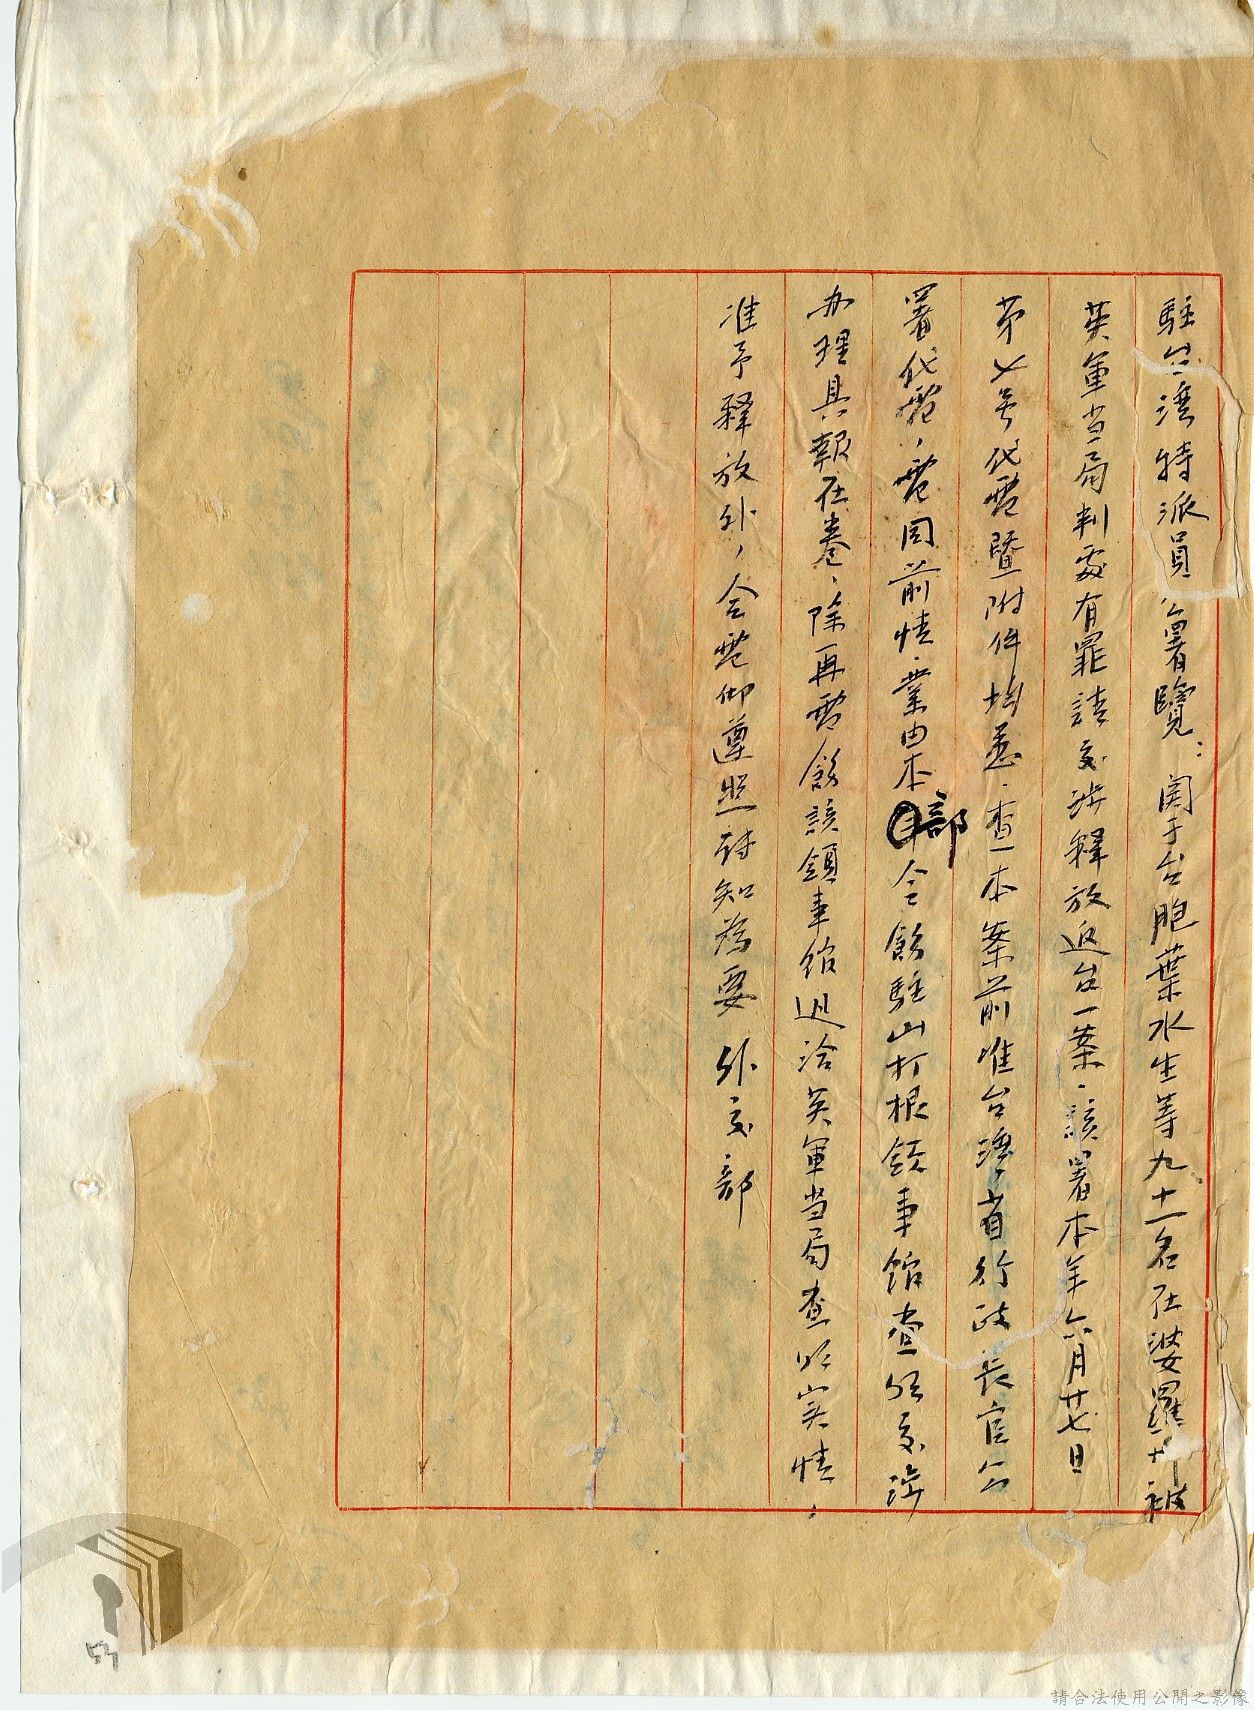 駐台灣特派員公署覽：関于台胞葉水生等九十一名在婆羅洲被
英軍当局判處有罪請交涉釋放返台一案、該署本年六月廿七日
第七号代電暨附件均悉、查本案前准台灣省行政長官公
署代電，電同前情、業由本部令飭駐山打根領事館查明交涉
办理具報在卷、除再電飭該領事館迅洽英軍当局查明实情、
准予釋放外，合電仰遵照轉知為要 外交部
53
請合法使用公開之影像